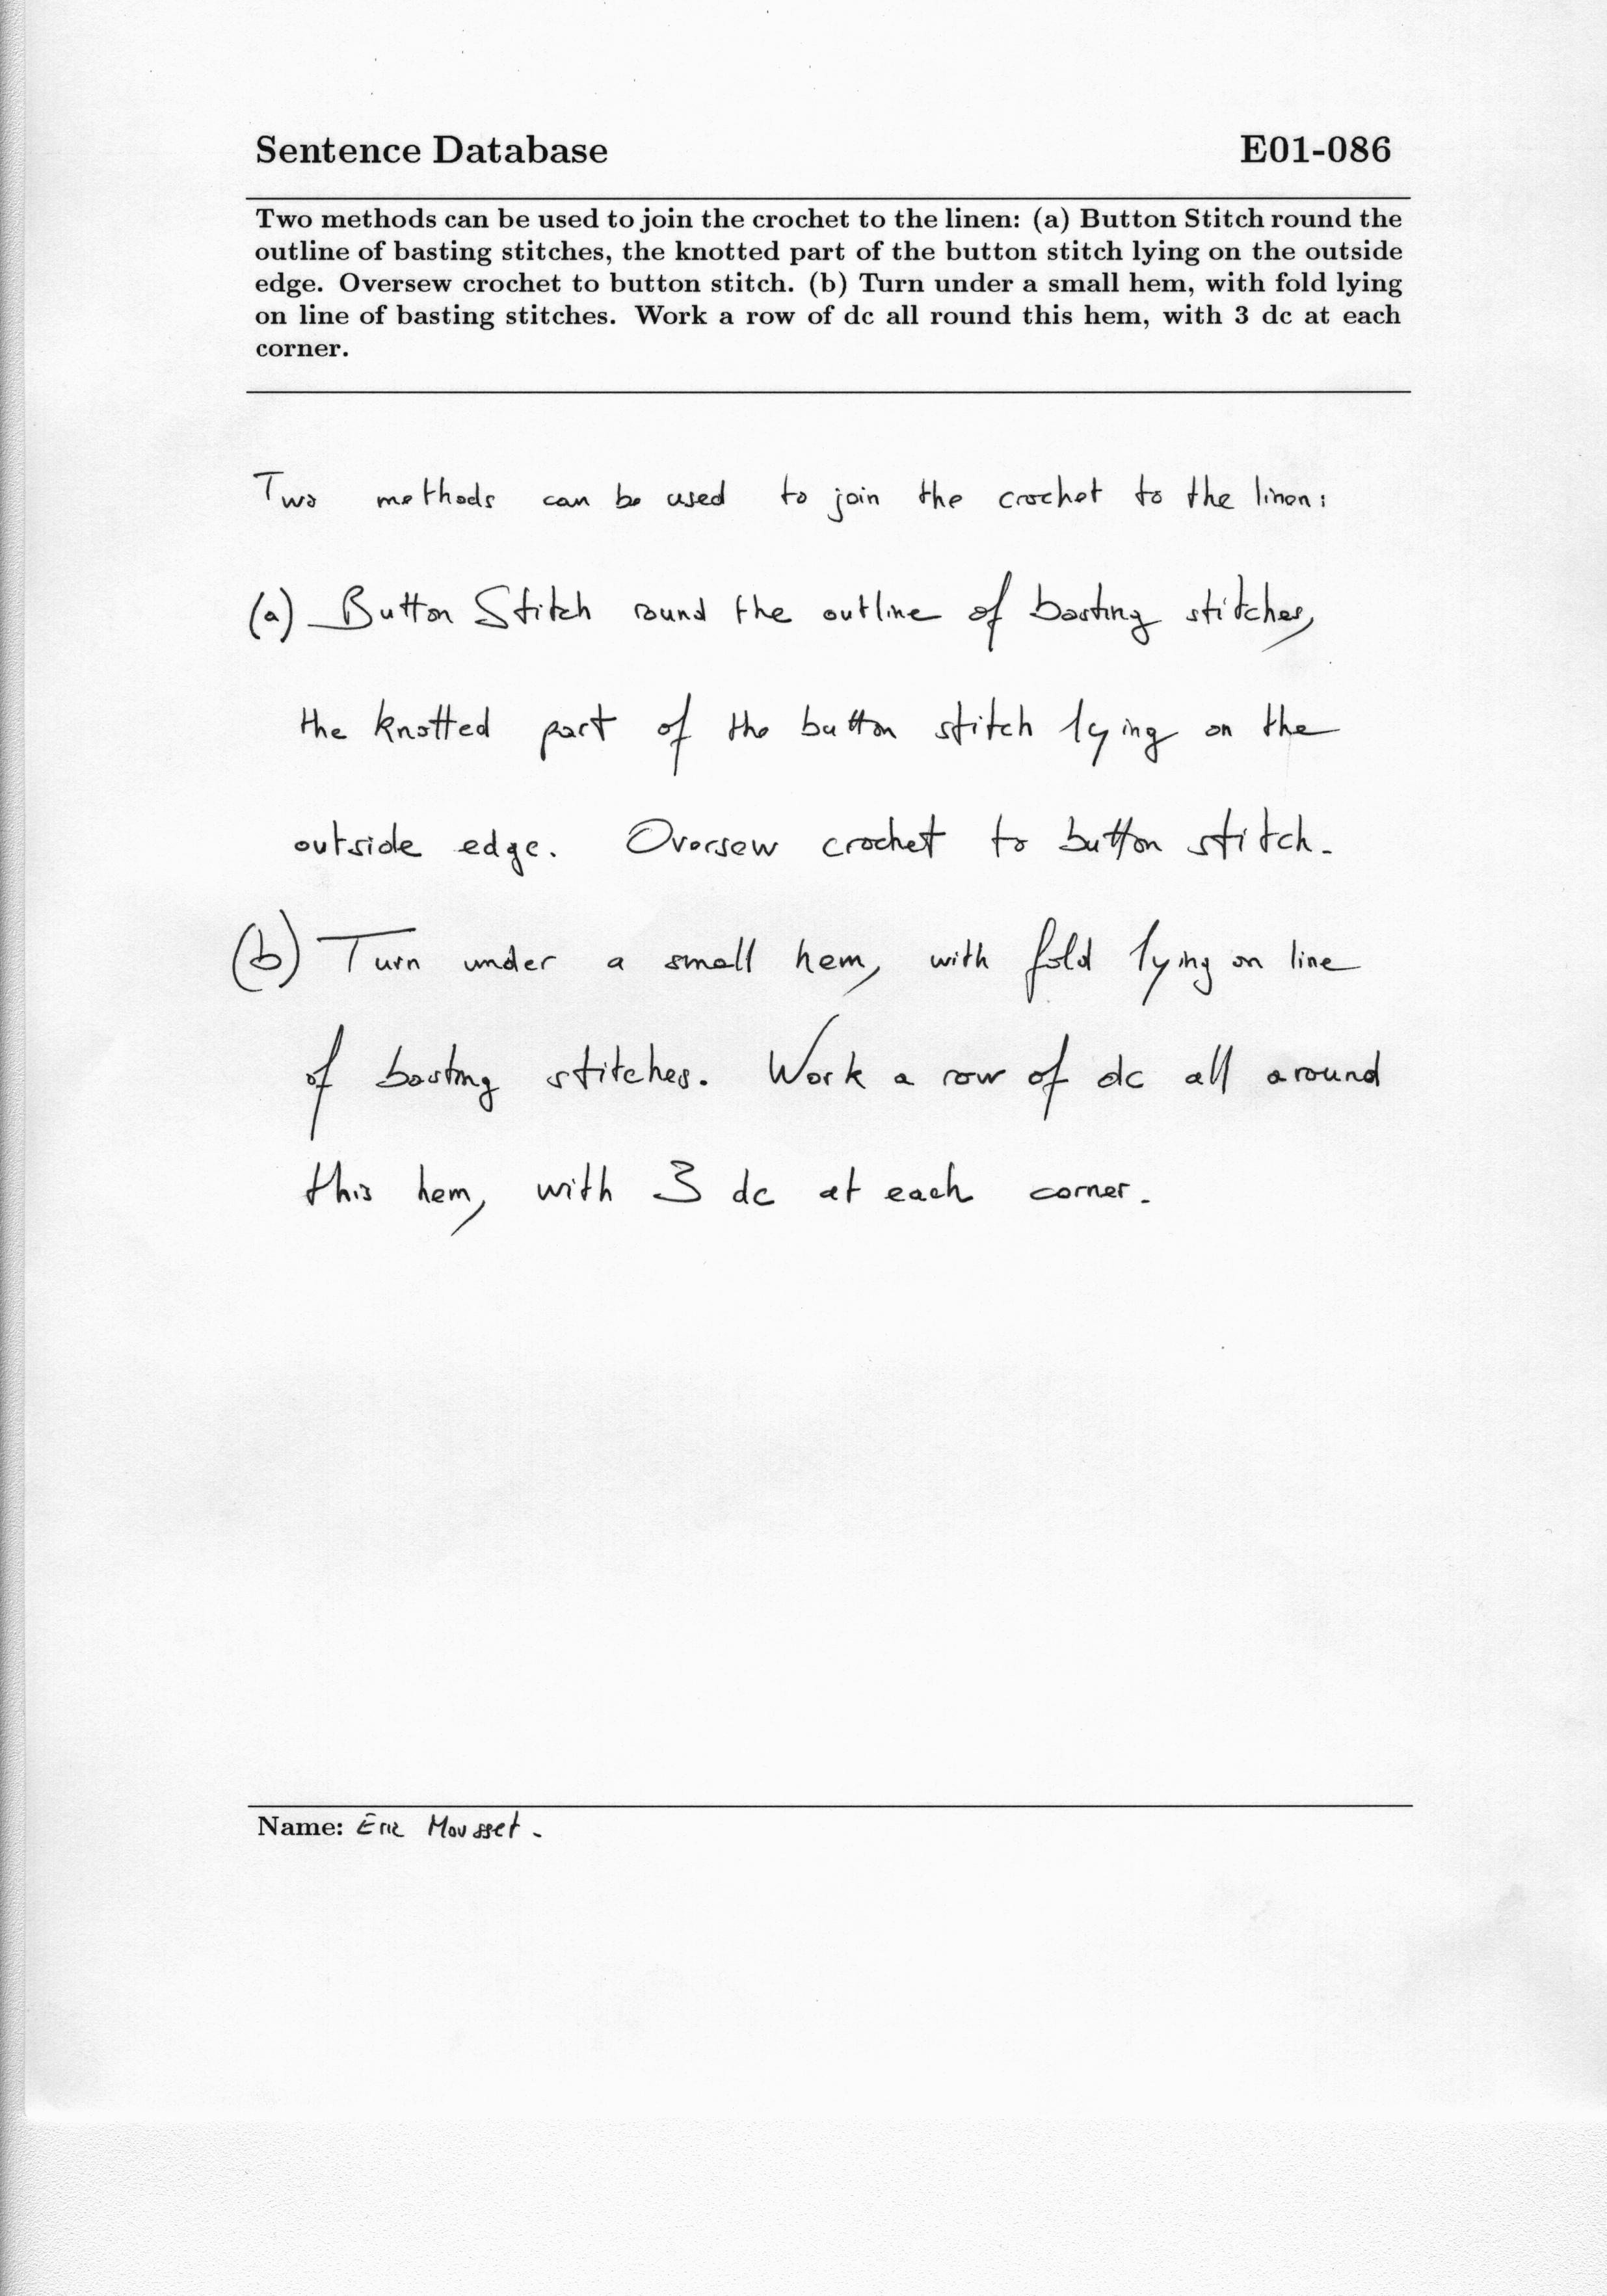 Sentence Database E01-086
Two methods can be used to join the crochet to the linen: (a) Button Stitch round the
outline of basting stitches, the knotted part of the button stitch lying on the outside
edge. Oversew crochet to button stitch. (b) Turn under a small hem, with fold lying
on line of basting stitches. Work a row of dc all round this hem, with 3 dc at each
corner.
Two methods can be used to join the crochet to the linen:
(a) Button Stitch round the outline of basting stitches,
the knotted part of the button stitch lying on the
outside edge. Oversew crochet to button stitch.
(b) Turn under a small hem, with fold lying on line
of basting stitches. Work a row of dc all around
this hem, with 3 dc at each corner.
Name: Eric Mousset.